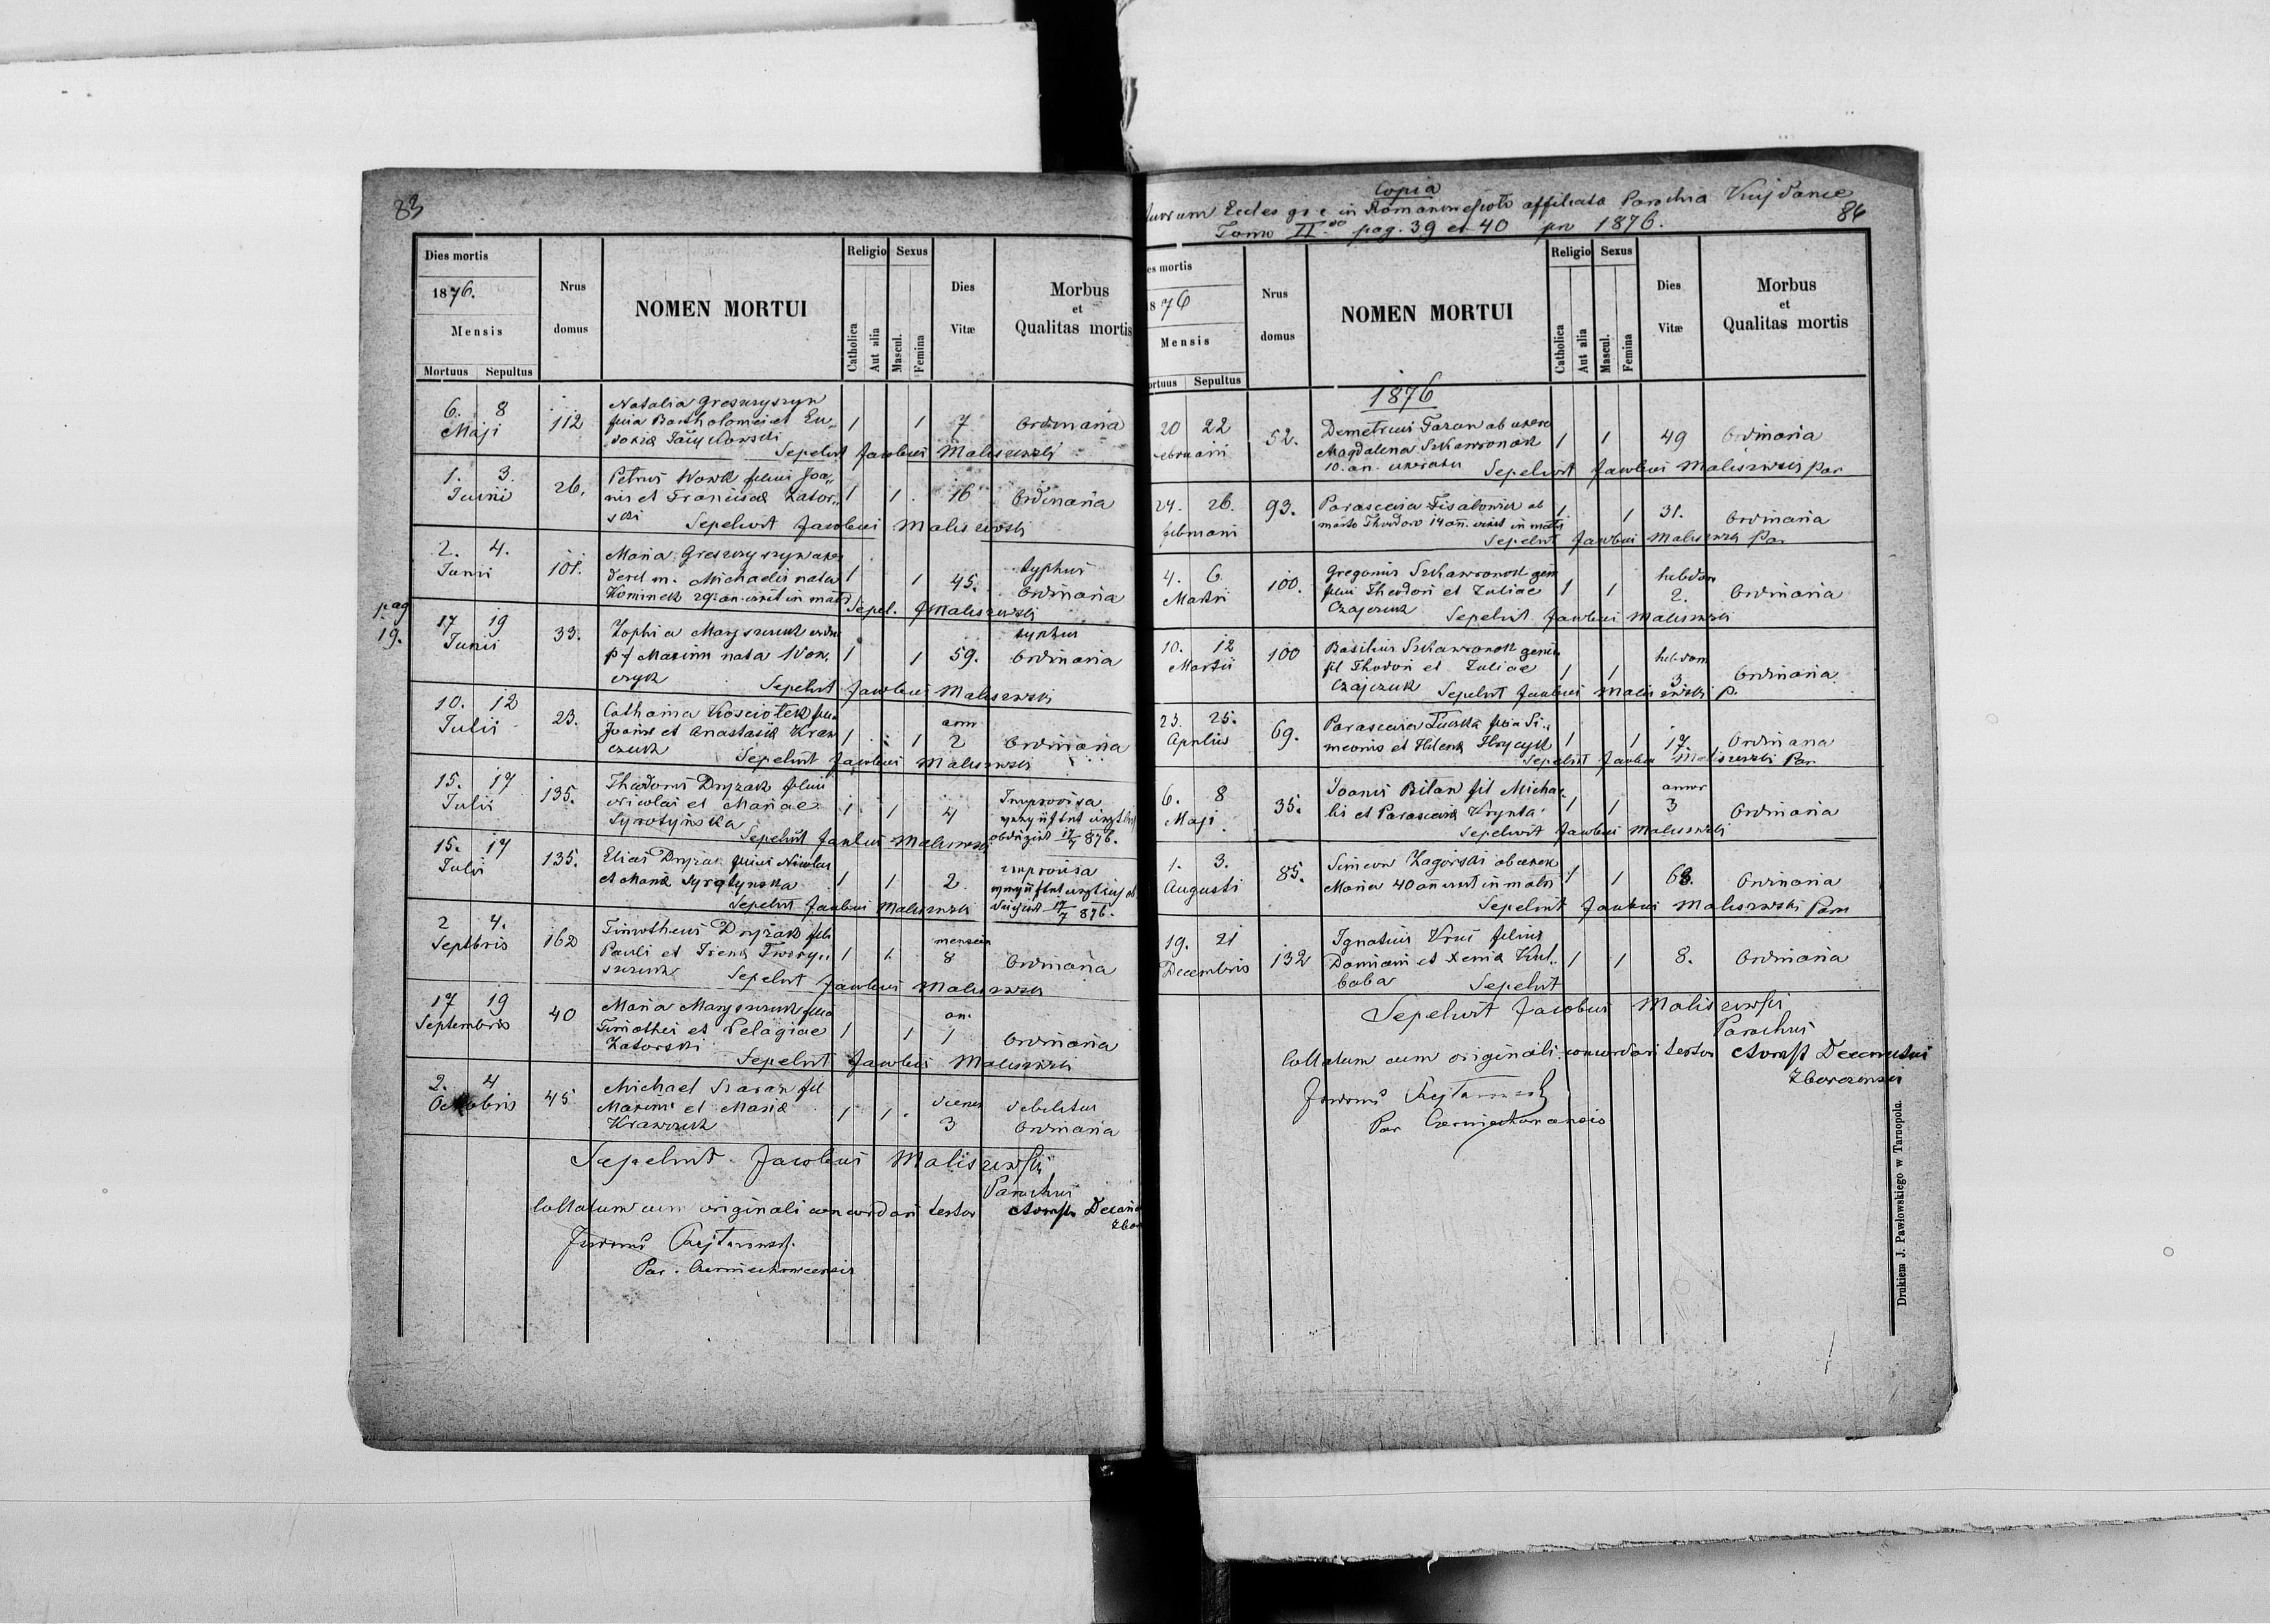 83
Dies mortis
1876.
Mensis
Mortuus Sepultus
Nrus
domus
NOMEN MORTUI
Religio Sexus
Catholica
Aut alia
Mascul.
Femina
Dies
Vitæ
Morbus
et
Qualitas mortis
6. 8
Maji
112
Natalia Greszczyszyn
filia Bartholomei et Eu„
dokia
1 1 7 Ordinaria
Sepelivit Jacobus Maliszewski
1. 3.
Junii
26.
Petrus Wowk filius Joa„
nis et Francisca Zator„
ski
1 1. 16 Ordinaria
Sepelivit Jacobus Maliszewski
2. 4.
Junii
101.
Maria Greszczyszyn
m. Michaelis nata
Kominek 29 an. vixit in
1 1 45.
typhus
Ordinaria
Sepel. J Maliszewski
pag
19.
17 19
Junii
33.
Zophia Maryszczuk
p f Maxim nata Wow„
czyk
1 1 59.
typhus
Ordinaria
Sepelivit Jacobus Maliszewski
10. 12
Julii
23.
Catharina Kosciołek filia
Joannis et Anastasia Kraw
czuk
1 1
ann
2
Ordinaria
Sepelivit Jacobus Maliszewski
15. 17
Julii
135.
Theodorus Dryzak filius
Nicolai et Mariae
Syrotyńska
1 1 4
Improvisa
17/7 876.
Sepelivit Jacobus Maliszewski
15. 17
Julii
135.
Elias Dryzak filius Nicolai
et Maria Syrotynska
1 1 2
improvisa
17/7 876.
Sepelivit Jacobus Maliszewski
2 4.
Septbris
162
Timotheus Dryzak fil
Pauli et Irena Twory„
szczuk
1 1.
8
Ordinaria
Sepelivit Jacobus Maliszewski
17 19
Septembris
40
Maria Maryszczuk filia
Timothei et Pelagiae
Zatorski
1 1
an.
1
Ordinaria
Sepelivit Jacobus Maliszewski
2. 4
Octobris
45
Michael Szaran fil
Maximi et Maria
Krawczuk
1 1.
dierum
3
debilitas
Ordinaria
Sepelivit Jacobus Maliszewski
Parochus
Collatum cum originali concordari testor
Par. Czerniechowcensis
Copia
Eccles gr c in affiliata Parochia Kujdance
Tomo II.do pag. 39 et 40 pro 1876.
84
es mortis
1876
Mensis
ortuus Sepultus
Nrus
domus
NOMEN MORTUI
Religio Sexus
Catholica
Aut alia
Mascul.
Femina
Dies
Vitæ
Morbus
et
Qualitas mortis
1876
20 22
ebruarii
52.
Demetrius Taran ab uxore
Magdalena Szkawronok
10. an.
1 1 49 Ordinaria
Sepelivit Jacobus Maliszewski par
24. 26.
februarii
93.
Parascevia Fisalowicz ab
marito Theodoro 14 an. vixit in matr
1. 1 31. Ordinaria
Sepelivit Jacobus Maliszewski Par
4. 6
Martii
100.
Gregorius Szkawronok gem
filius Theodori et Juliae
Czajczuk
1 1
hebdom
2.
Ordinaria
Sepelivit Jacobus Maliszewski
10. 12
Martii
100
Basilius Szkawronok gemin
fil Theodori et Juliae
Czajczuk
1 1
hebdom
3
Ordinaria
Sepelivit Jacobus Maliszewski p.
23. 25.
Aprilis
69.
Parascevia filia Si„
meonis et Helena Hrycyk
1 1 17. Ordinaria
Sepelivit Jacobus Maliszewski Par
6. 8
Maji
35.
Joanis Bilan fil Michae„
lis et Parascevia Krynta
1 1
annor
3
Ordinaria
Sepelivit Jacobus Maliszewski
1. 3.
Augusti
85.
Simeon Zagórski ab uxore
Maria 40 an vixit in matr
1 1 68. Ordinaria
Sepelivit Jacobus Maliszewski Par
19. 21
Decembris
132
Ignatius Krus filius
Damiani et Xenia Kul„
baba
1 1 8. Ordinaria
Sepelivit
Sepelivit Jacobus Maliszewski
Parochus
Collatum cum originali concordari testor
Par Czerniechowcensis
Drukiem J. Pawłowskiego w Tarnopolu.